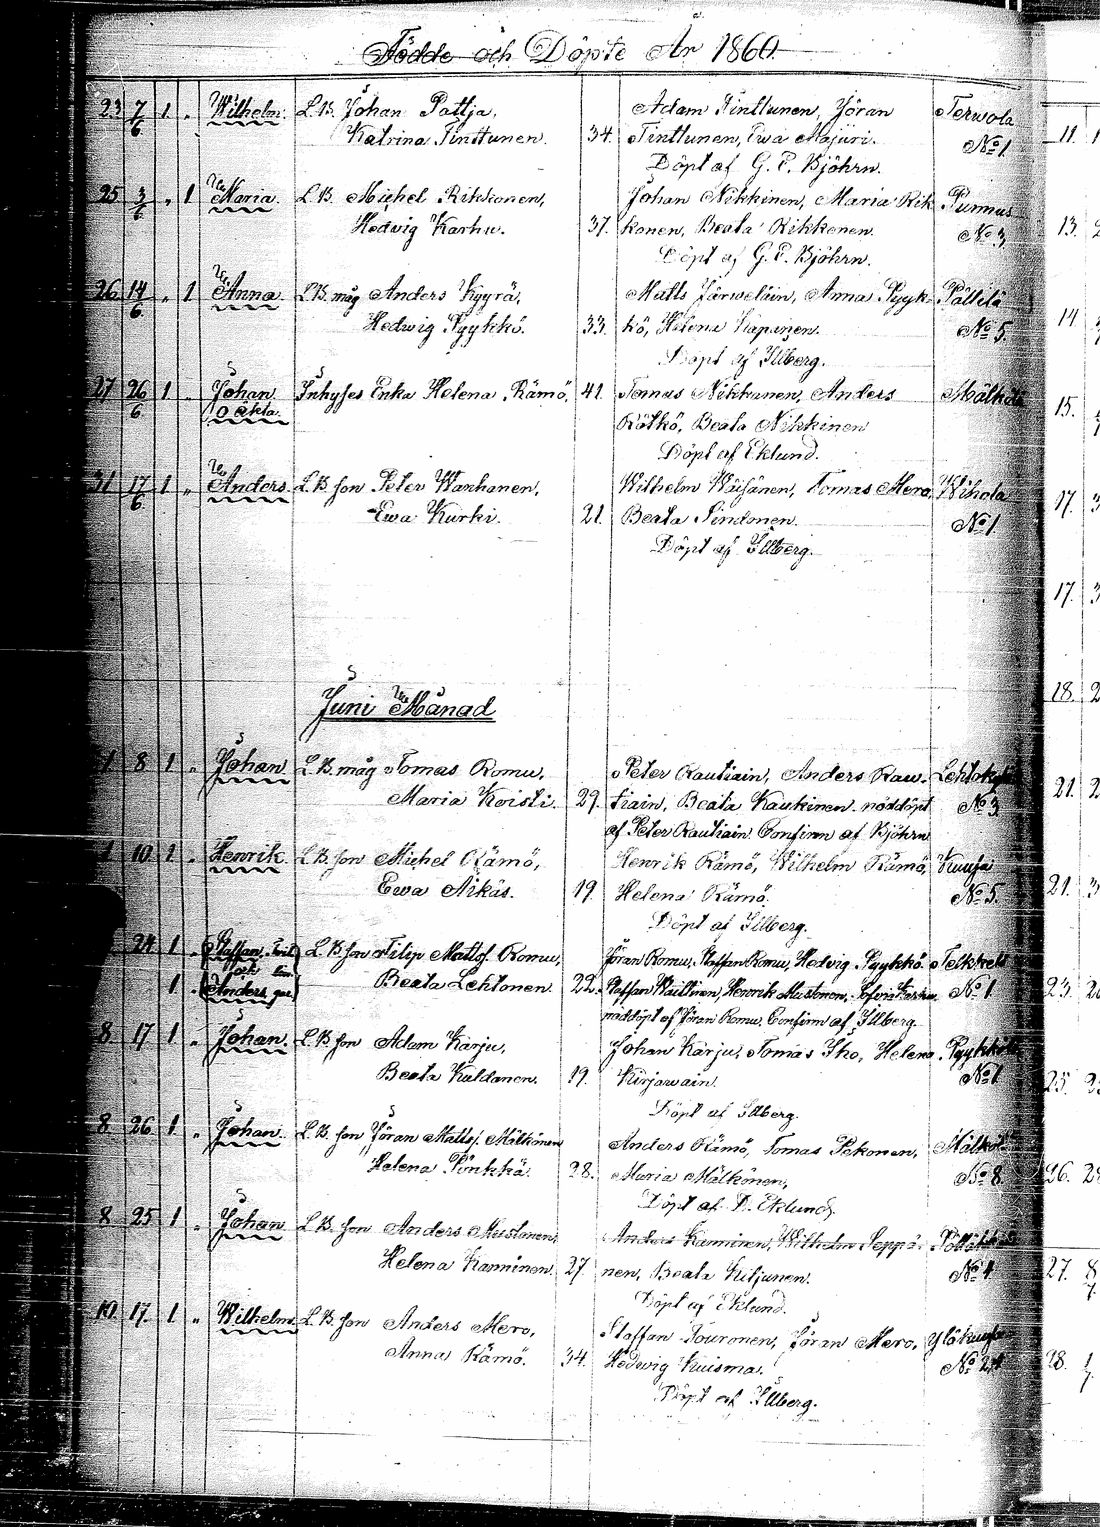 Födde och Döpte År 1860.
23 7/6 1 " Wilhelm. L.B. Johan Pottja, Adam Tinttunen, Jöran Terwola
Katrina Tinttunen. 34. Tinttunen, Ewa Majuri. No 1.
Döpt af G. E. Björn.
25 3/6 " 1 Maria L.B. Michel Rikkonen, Johan Nikkinen, Maria Rik Punnus
Hedvig Karhu. 37. konen, Beata Rikkonen. No 3,
Döpt af G. E. Björn.
26 14/6 " 1 Anna. L.B. måg Anders Kyyrä, Matts Järweläin, Anna Pyyk- Pällilä
Hedwig Pyykkö. 33. kö, Helena Kapanen. No 5.
Döpt af Illberg.
27 26/6 1 " Johan Inhyses Enka Helena Rämö, 41. Tomas Nikkanen, Anders Mälkölä
o äkta. Rötkö, Beata Nikkinen
Döpt af Eklund.
31 17/6 1 " Anders. L.B. son Peter Wanhanen, Wilhelm Wäisänen, Tomas Mero, Wihola
Ewa Kurki. 21. Beata Sindonen. No 1.
Döpt af Illberg.
Juni Månad
1 8 1 " Johan L.B. måg Tomas Romu, Peter Rautiain, Anders Rau- Lehtokylä
Maria Koisti. 29. tiain, Beata Kaukinen. nöddöpt No 3.
af Peter Rautiain. Confirm af Björn
1 10 1 " Henrik. L.B. son Michel Rämö, Henrik Rämö, Wilhelm Rämö, Kuusa
Ewa Äikäs. 19. Helena Rämö. No 5.
Döpt af Illberg.
24 1 " Staffan, L.B. son Filip Mattsf. Romu, Jöran Romu, Staffan Romu, Hedvig Pyykkö. Telkkelä
och
1 " Anders Beata Lehtonen. 22. Staffan Waittinen, Henrik Mustonen, Sofvia No 1
nöddöpt af Jöran Romu, Confirm af Illberg.
8 17 1 " Johan. L.B. son Adam Kärju, Johan Kärju, Tomas Iho, Helena Pyykkölä
Beata Kuldanen. 19. Kirjawain. No 1
Döpt af Illberg.
8 26 1 " Johan L.B. son Jöran Mattsf. Mälkönen Anders Rämö, Tomas Pekonen, Mälkölä
Helena Pönkkä. 28. Maria Mälkönen, No 8.
Döpt af D. Eklund.
8 25 1 " Johan L.B. son Anders Mustonen, Anders Kanninen, Wilhelm Seppä-
Helena Kanninen. 27. nen, Beata Kiljunen. No 4
Döpt af Eklund.
10. 17. 1 " Wilhelm. L.B. son Anders Mero, Staffan Touronen, Jöran Mero, Yläkuusa
Anna Rämö. 34. Hedwig Kuisma. No 24
Döpt af Illberg.
11.
13.
14.
15.
17.
17.
18.
21.
21.
23.
25.
26.
27.
28.